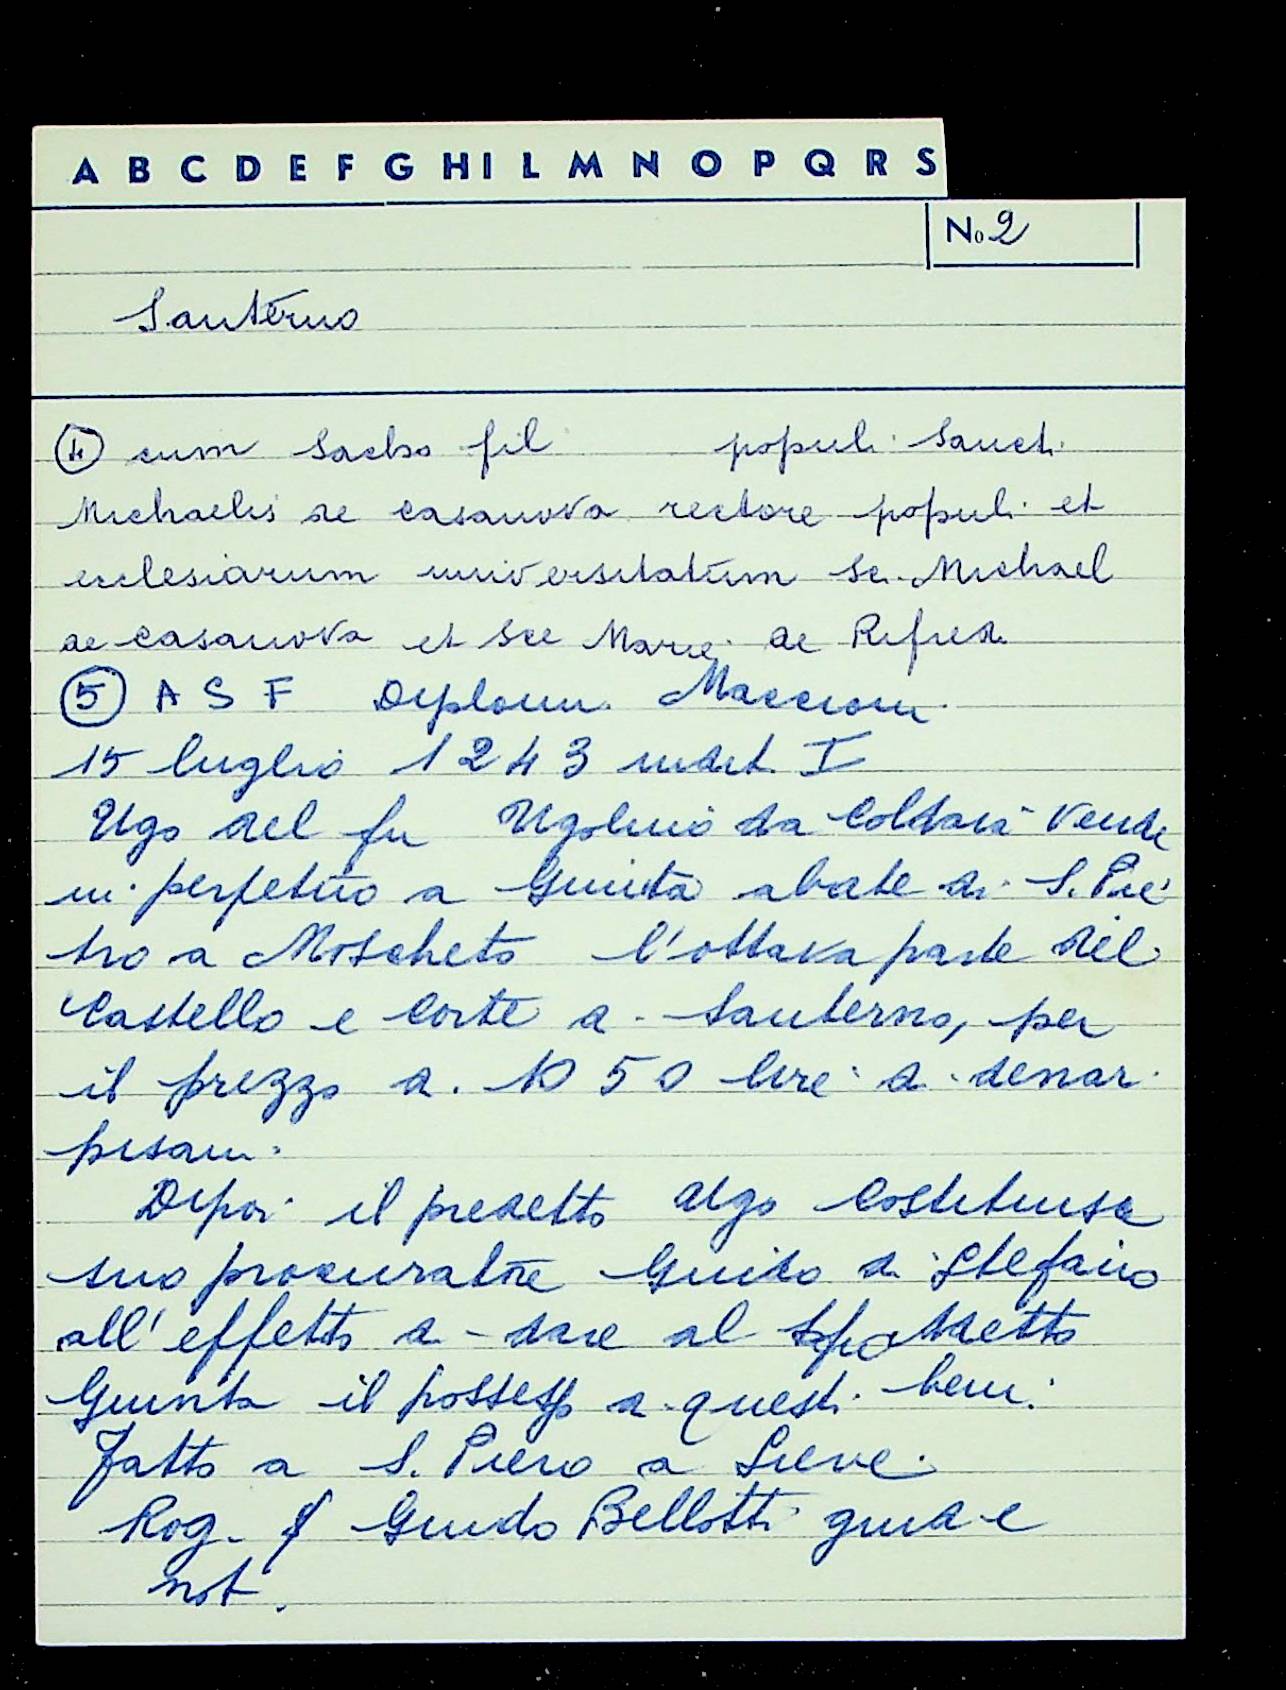 A B C D E F G H I L M N O P Q R S
No 2
Santerno
④ cum fil populi Sancti
Michaelis de Casanova rectore populi et
ecclesiarum universitatum Sci Michael
de Casanova et Sce Marie de Rifred
⑤ A S F Diplom. Maccioni
15 luglio 1243 indict. I
Ugo del fu Ugolino da Coldaia vende
in perpetuo a Giunta abate di S. Pie
tro a Moscheto l'ottava parte del
Castello e Corte di Santerno, per
il prezzo di 1050 lire di denari
pisani.
Dipoi il predetto Ugo costituisce
suo procuratore Guido di Stefano
all'effetto di dare al
Giunta il possesso di questi beni.
Fatto a S. Piero a Sieve.
Rog. Guido Bellotti giud e
not.